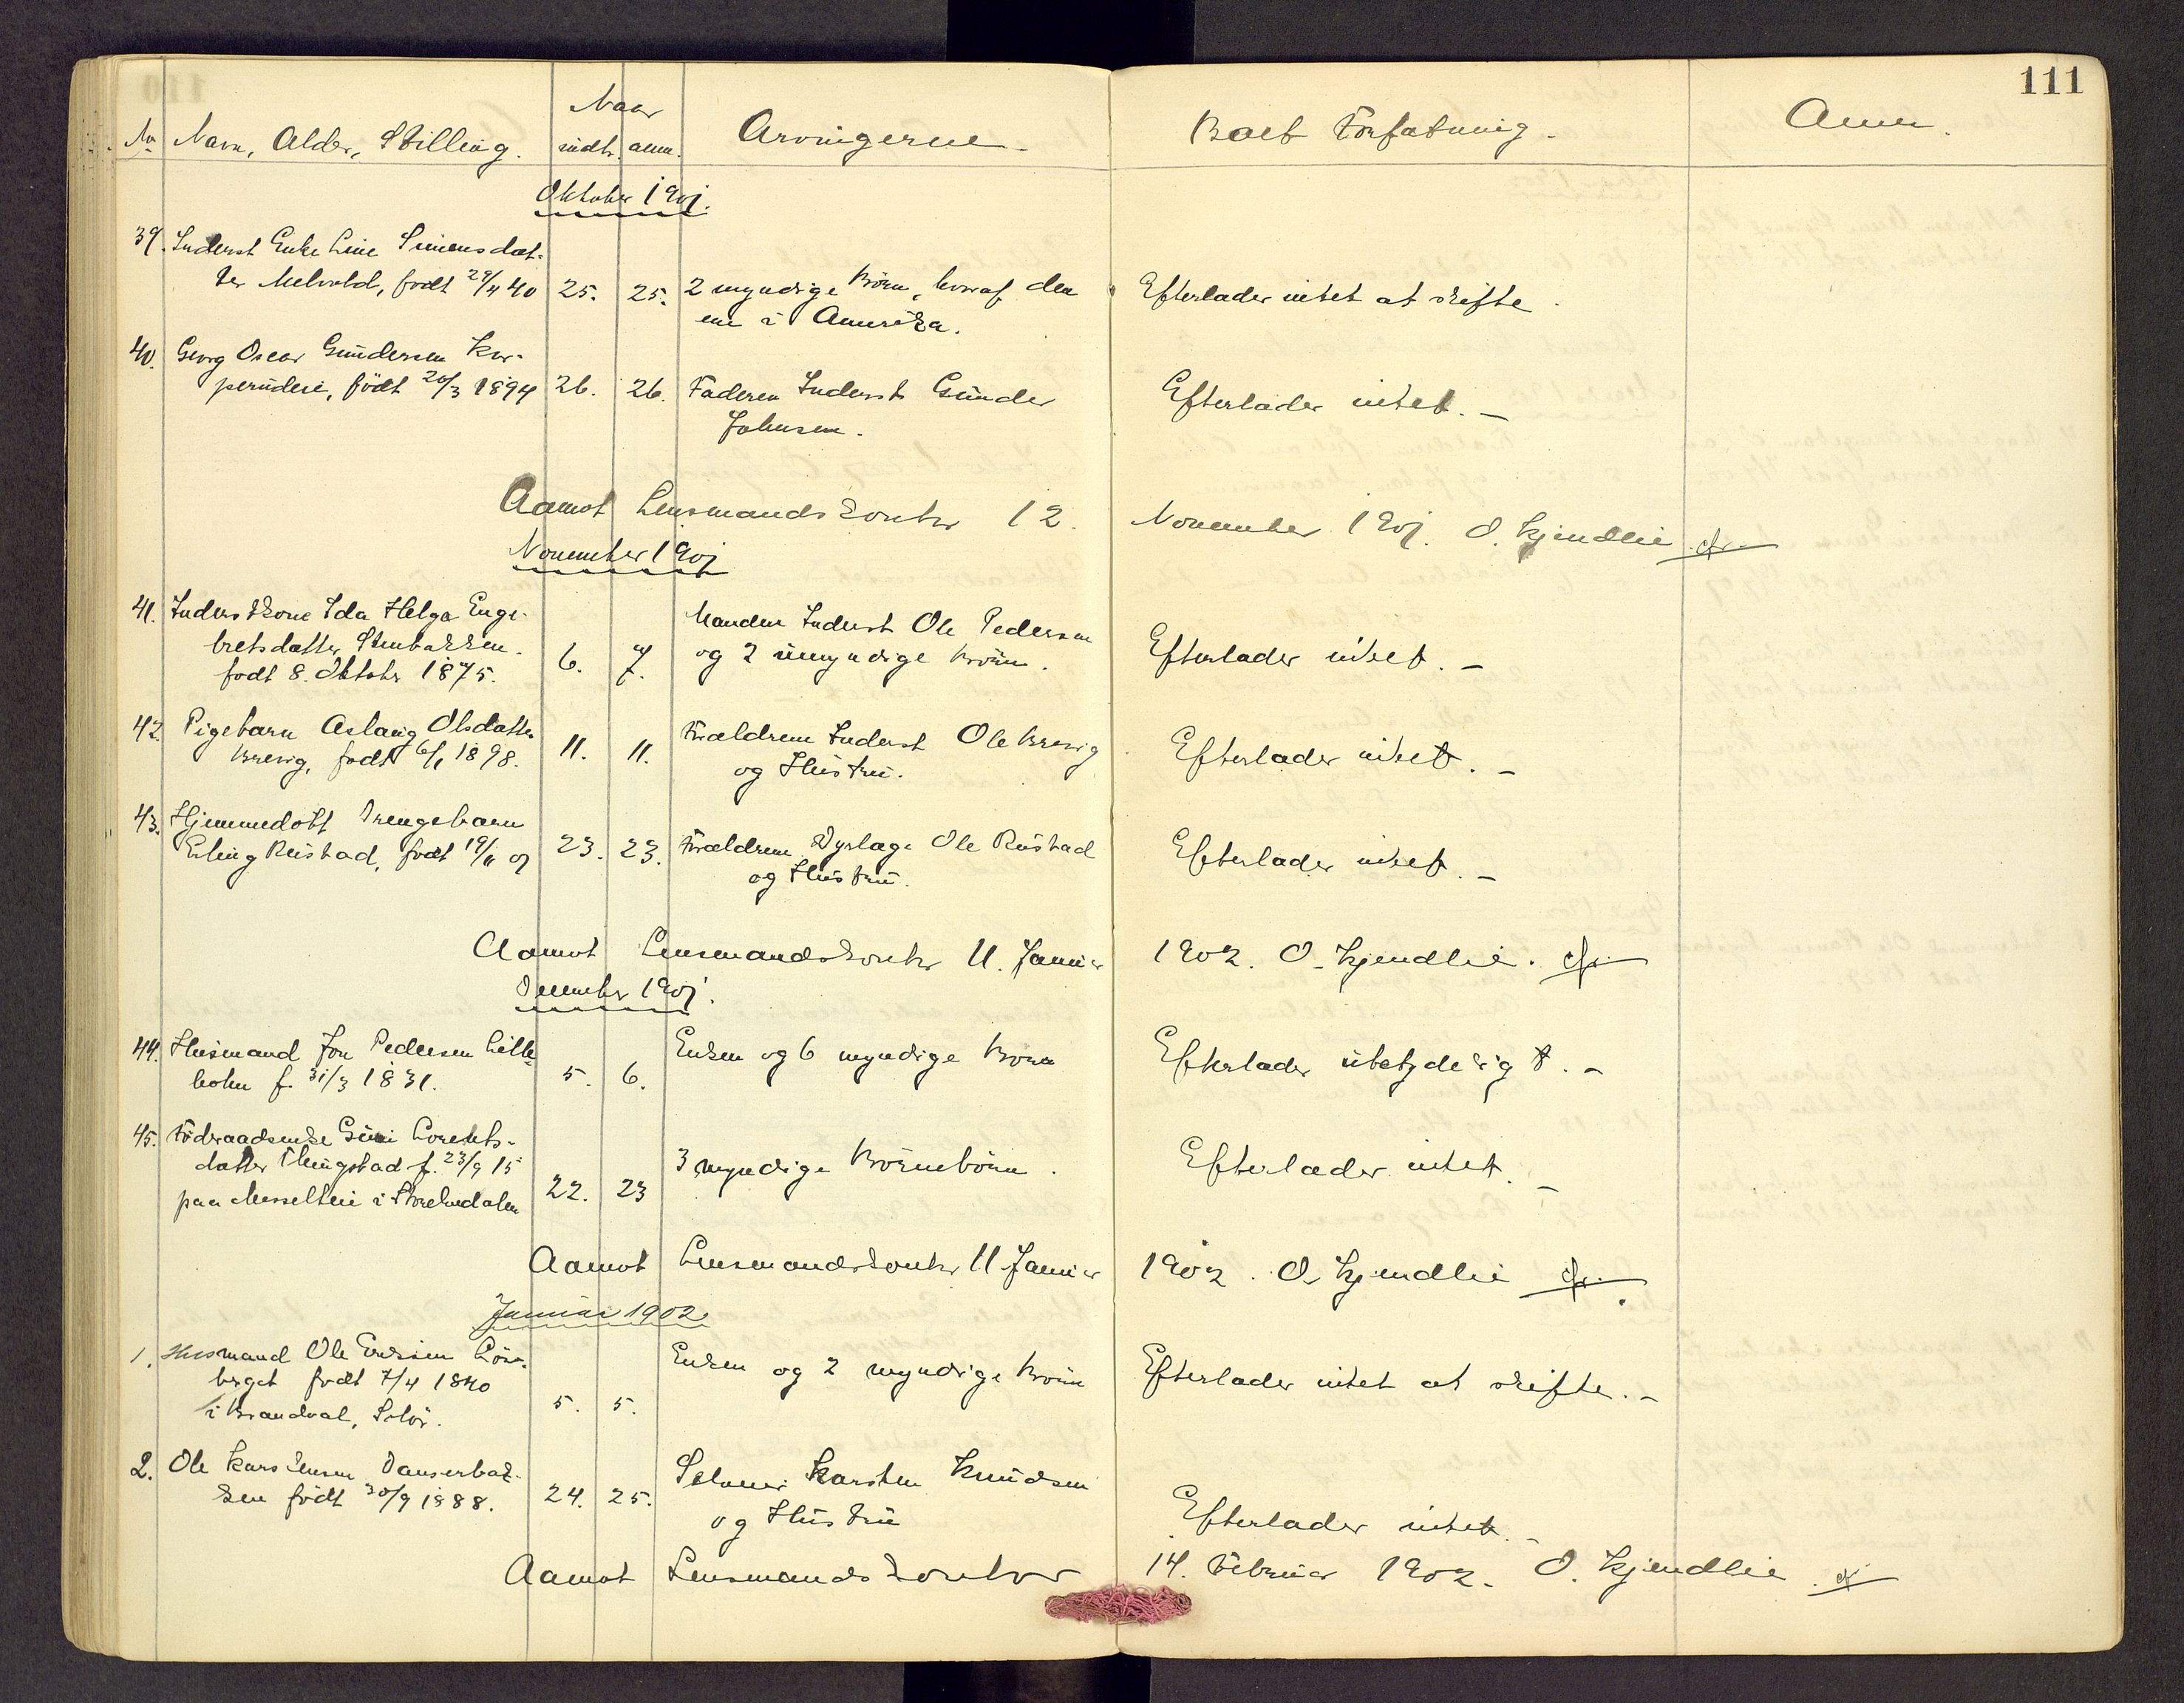 111
Naar
No Navn, Alder, Stilling. indtr. anm. Arvingerne. Boets Forfatning. Anm.
Oktober 1901.
39. Inderst Enke Line Simensdat-
ter Melvold, født 29/4 40 25. 25. 2 myndige Børn, hvoraf den Efterlader intet at skifte.
ene i Amerika.
40. Georg Oscar Gundersen
født 20/3 1894 26. 26. Faderen Inderst Gunder Efterlader intet. -
Johnsen.
Aamot Lensmandskontor 12. November 1901. O. Kjendlie
November 1901
41. Inderstkone Ida Helga Enge- Manden Inderst Ole Pedersen
bretsdatter Stenbakken. 6. 7. og 2 umyndige Børn. Efterlader intet. -
født 8. Oktober 1875.
42. Pigebarn Aslaug Olsdatter Forældrene Inderst Ole Brevig
Brevig, født 6/1 1898. 11. 11. og Hustru. Efterlader intet. -
43. Hjemmedøbt Drengebarn
Erling Rustad, født 19/11 01 23. 23. Forældrene Dyrlæge Ole Rustad Efterlader intet. -
og Hustru.
Aamot Lensmandskontor 11. Januar 1902. O. Kjendlie.
December 1901.
44. Husmand Jon Pedersen Lille- Enken og 6 myndige Børn Efterlader ubetydeligt. -
holm f. 31/3 1831. 5. 6.
45. Føderaadsenke Guri Lorents-
datter Thingstad f. 23/9 15 3 myndige Børnebørn. Efterlader intet. -
paa Messeltlie i Storelvedalen 22. 23
Aamot Lensmandskontor 11 Januar 1902. O. Kjendlie
Januar 1902
1. Husmand Ole Eriksen Løv- Enken og 2 myndige Børn Efterlader intet at skifte. -
berget født 7/4 1840
i Brandval, Solør. 5. 5.
2. Ole Karstensen Danserbak- Selveier Karsten Knudsen
ken født 30/9 1888. 24. 25. og Hustru Efterlader intet. -
Aamot Lensmandskontor 14. Februar 1902. O. Kjendlie.